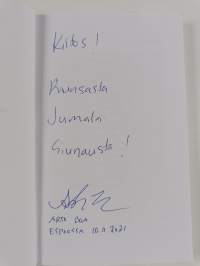 Kiitos!
Runsasta
Jumala
Siunausta!
ARTO
ESPOOSSA 10.11 2021